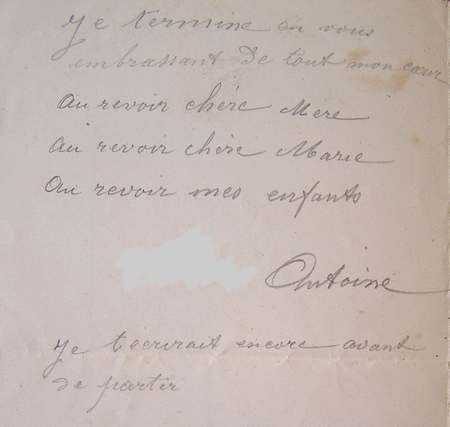 Je termine en vous
embrassant de tout mon cœur
Au revoir chère Mère
Au revoir chère Marie
Au revoir mes enfants
Antoine
Je tecrirait encore avant
de partir